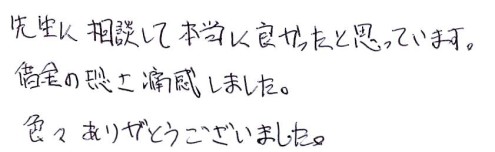 先生に相談して本当に良かったと思っています。
借金の恐さ痛感しました。
色々ありがとうございました。